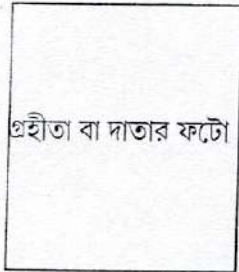 গ্রহীতা বা দাতার ফটো